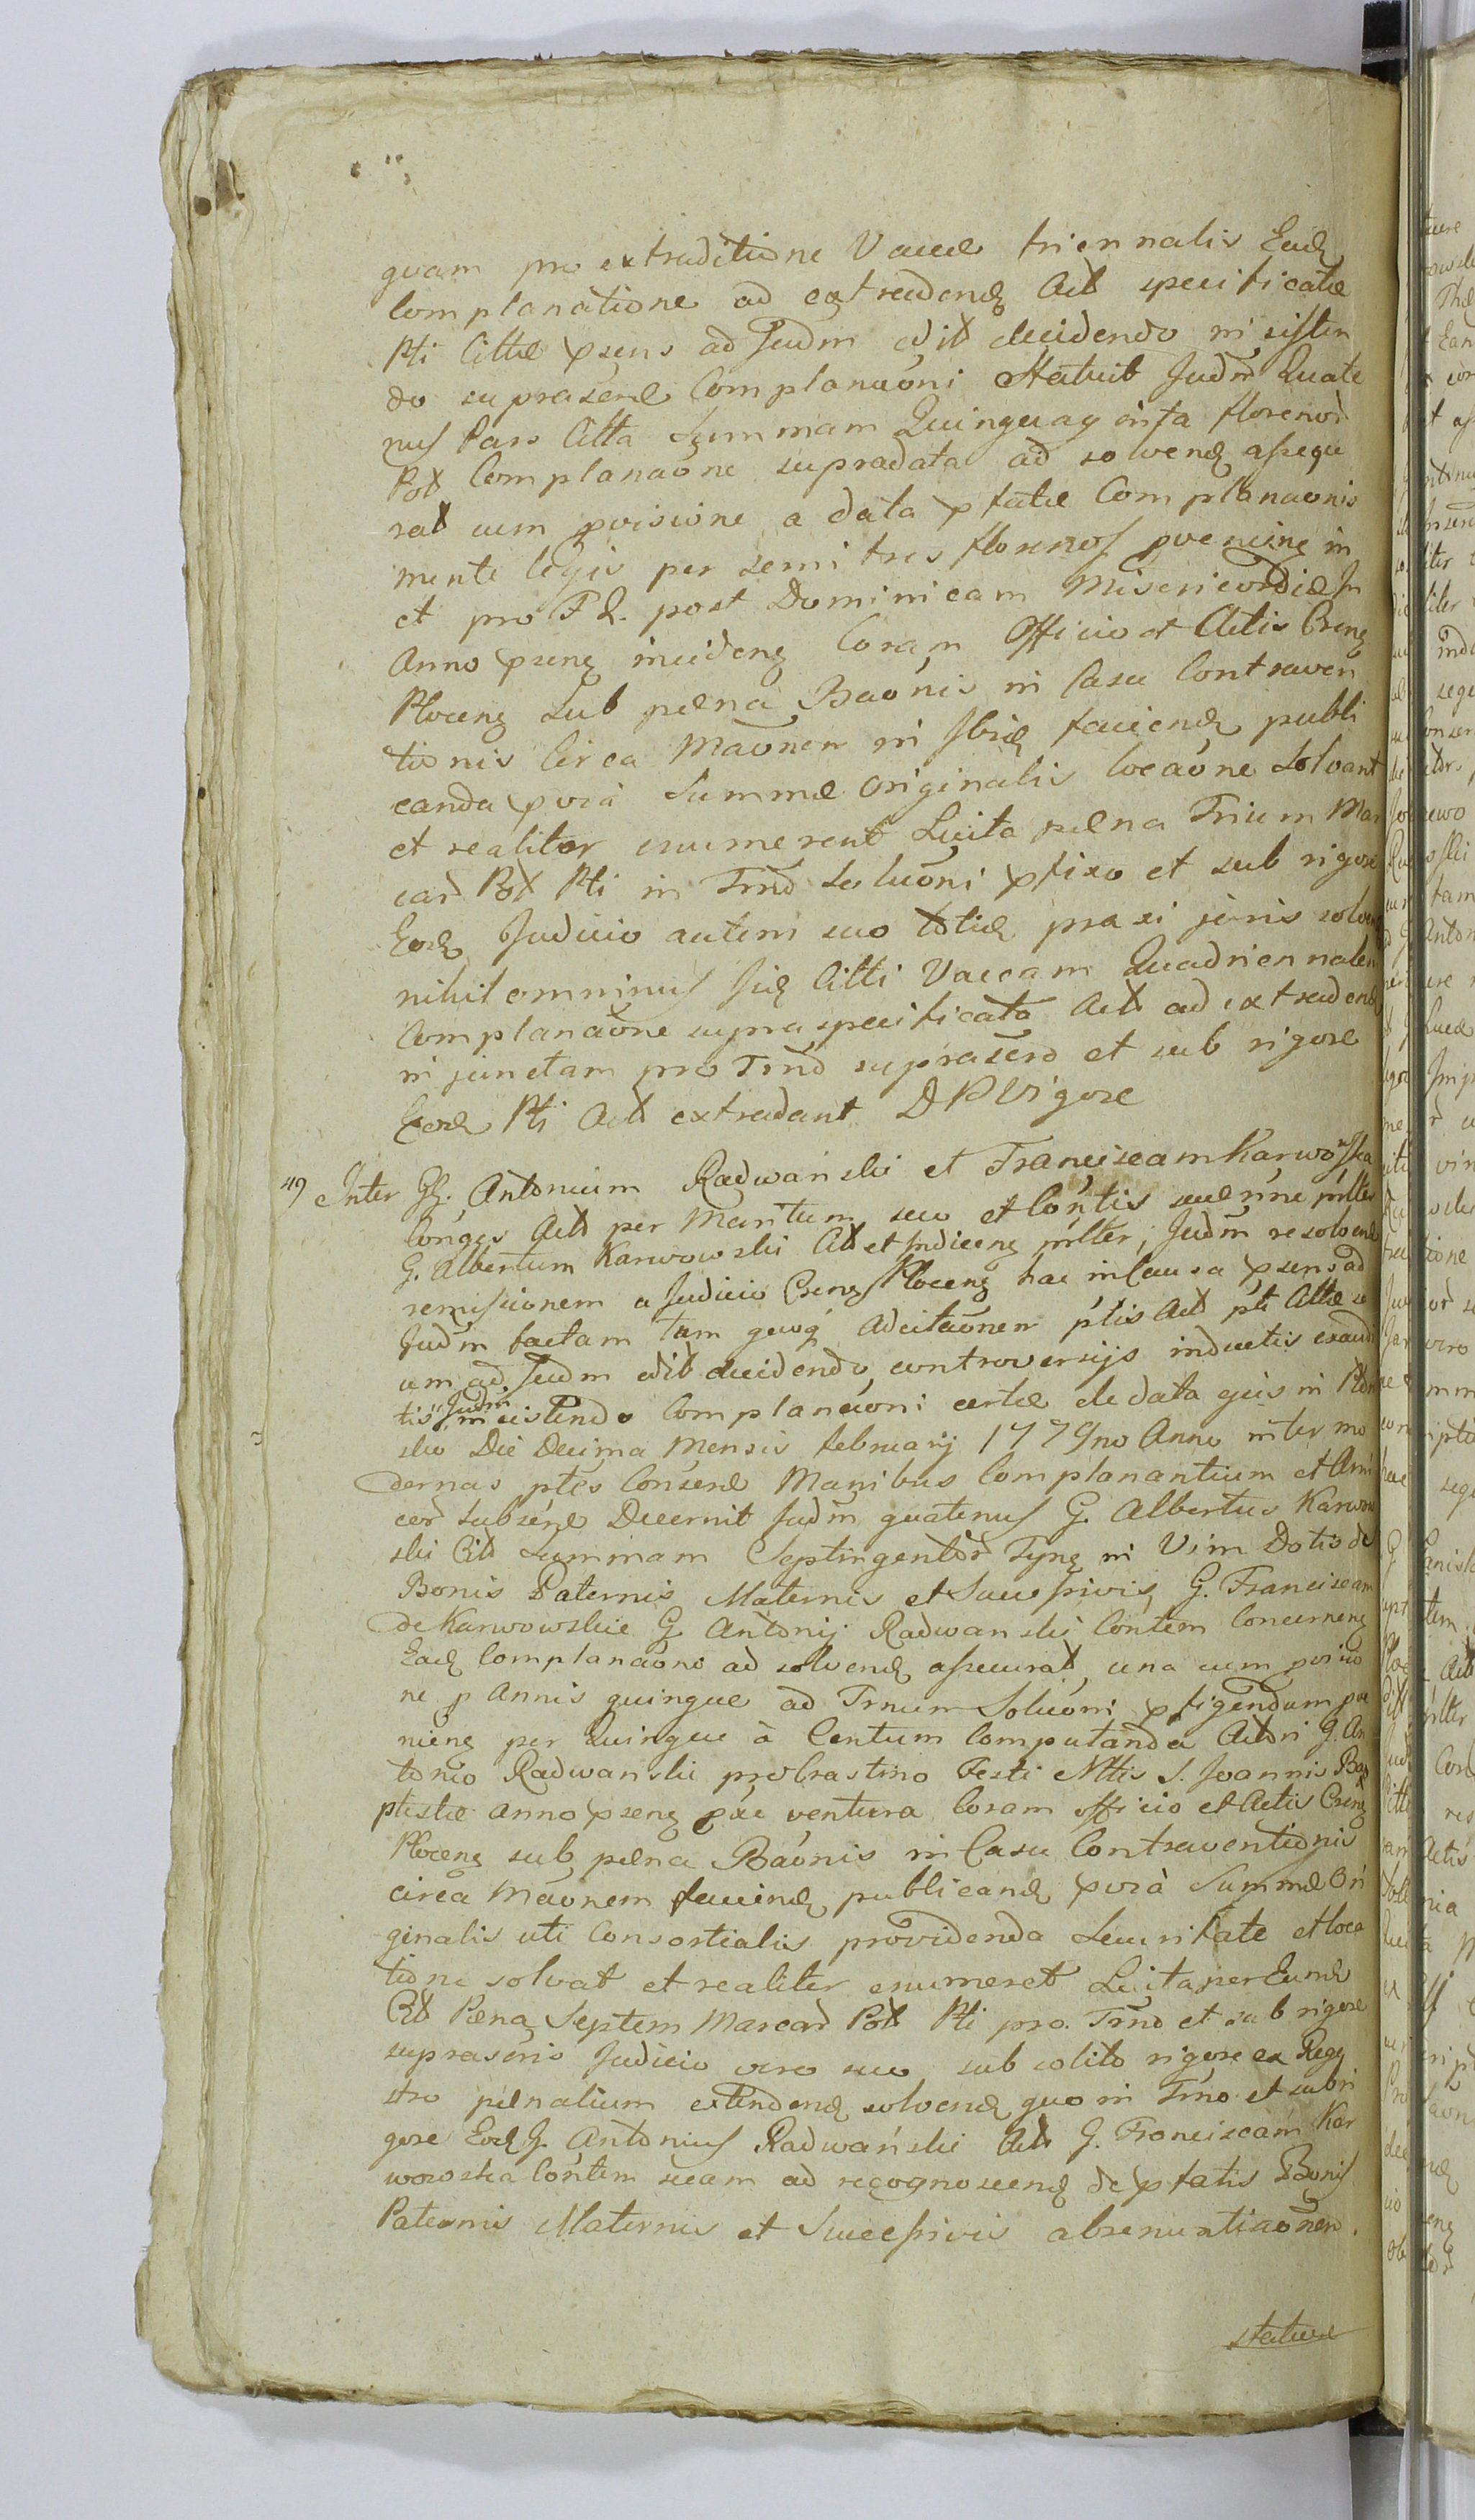 quam pro extraditione Vaccæ triennalis Ead
Complanatione ad extradend Act specificatæ
Pti Cittæ præsens ad Judm edit decidendo insisten
do suprascrae Complanaoni Statuit Judm Quate
nus Pars Citta Summam Quinquaginta florenor
Pol Complanaone supradata ad solvend assecu
rat cum pvisione a data pfatæ Complanaonis
mente legis per semi tres florenos pvening in
et pro F 2. post Dominicam Misericordiæ in
Anno pseng incideng Coram Officio et Actis Creng
Ploceng Sub pæna Baonis in Casu Contraven
tionis Circa Maonem in Ibid faciend publi
canda pvia Summæ originalis locaone Solvant
et realiter enumerent Luita pæna Trium Mar
car Pol Pti in Trno Soluoni pfixo et sub rigore
Eod Judicio autem suo totid praxi juris solvend
nihilominus iid Citti Vaccam Quadriennalem
Complanaone supra specificata Act ad extradend
injunctam pro Trno suprascro et sub rigore
Eod Pti Act extradant DPVigore
49 Inter GG. Antonium Radwański et Franciscam Karwoska
Conges Act per Maritum suo et Contis suæ nne mlter
G. Albertum Karwowski Cit et Indiceng mlter, Judm resolvend
remissionem a Judicio Creng Ploceng hac in Causa psens ad
Judm factam tum quoq Adcitaonem ptis Act pti Cittæ se
cum ad Judm edit decidendo, controversijs inductis exaudi
tis Judm insistendo Complanaoni certæ de data ejus in Płon
sko Die Decima Mensis februarij 1779no Anno inter mo
dernas ptes Conserae Manibus Complanantium et Ami
cor subscrae Decernit Judm quatenus G. Albertus Karwow
ski Cit Summam Septingentor Tynf in Vim Dotis de
Bonis Paternis Maternis et Successivis, G. Franciscam
de Karwowskie G. Antonij Radwanski Contem Concerneng
Ead Complanaone ad solvend assecurat, una cum pvisio
ne p Annis quinque ad Trnum Soluoni pfigendum pve
nieng per Quinque à Centum Computanda Actori G. An
tonio Radwanski pro Crastino Festi Nttis S. Joannis Bap
ptistæ anno pseng pxe ventura Coram officio et Actis Creng
Ploceng sub pæna Baonis in Casu Contraventionis
circa Maonem faciend publicand pvia Summæ Ori
ginalis uti Consortialis providenda Securitate et loca
tione solvat et realiter enumeret Luita per Eund
Cit Pæna Septem Marcar Pol Pti pro Trno et sub rigore
suprascris Judicio vero suo sub solito rigore ex Regy
stro pænalium extendend solvend quo in Trno et sub ri
gore Eod G. Antonius Radwański Act G. Franciscam Kar
wowska Contem suam ad recognoscend de pfatis Bonis
Paternis Maternis et Successivis abrenuntiaonem.
statuæ